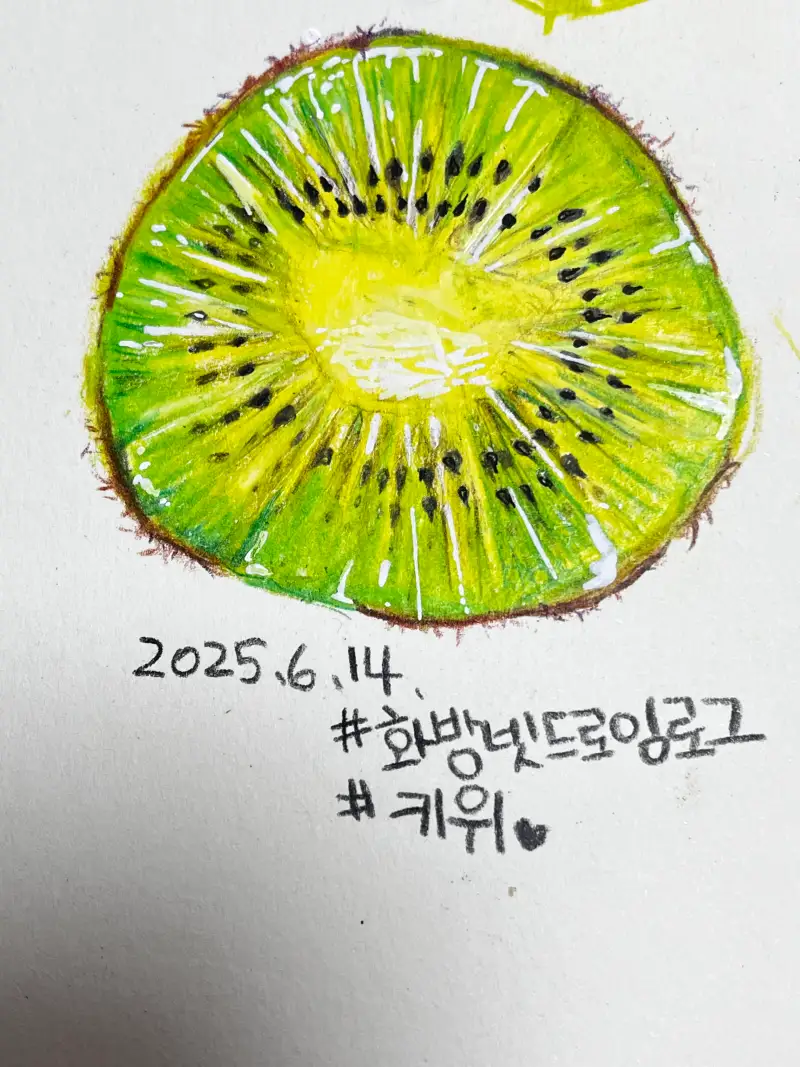 2025.6.14.
#화방넷드로잉로그
#키위♥